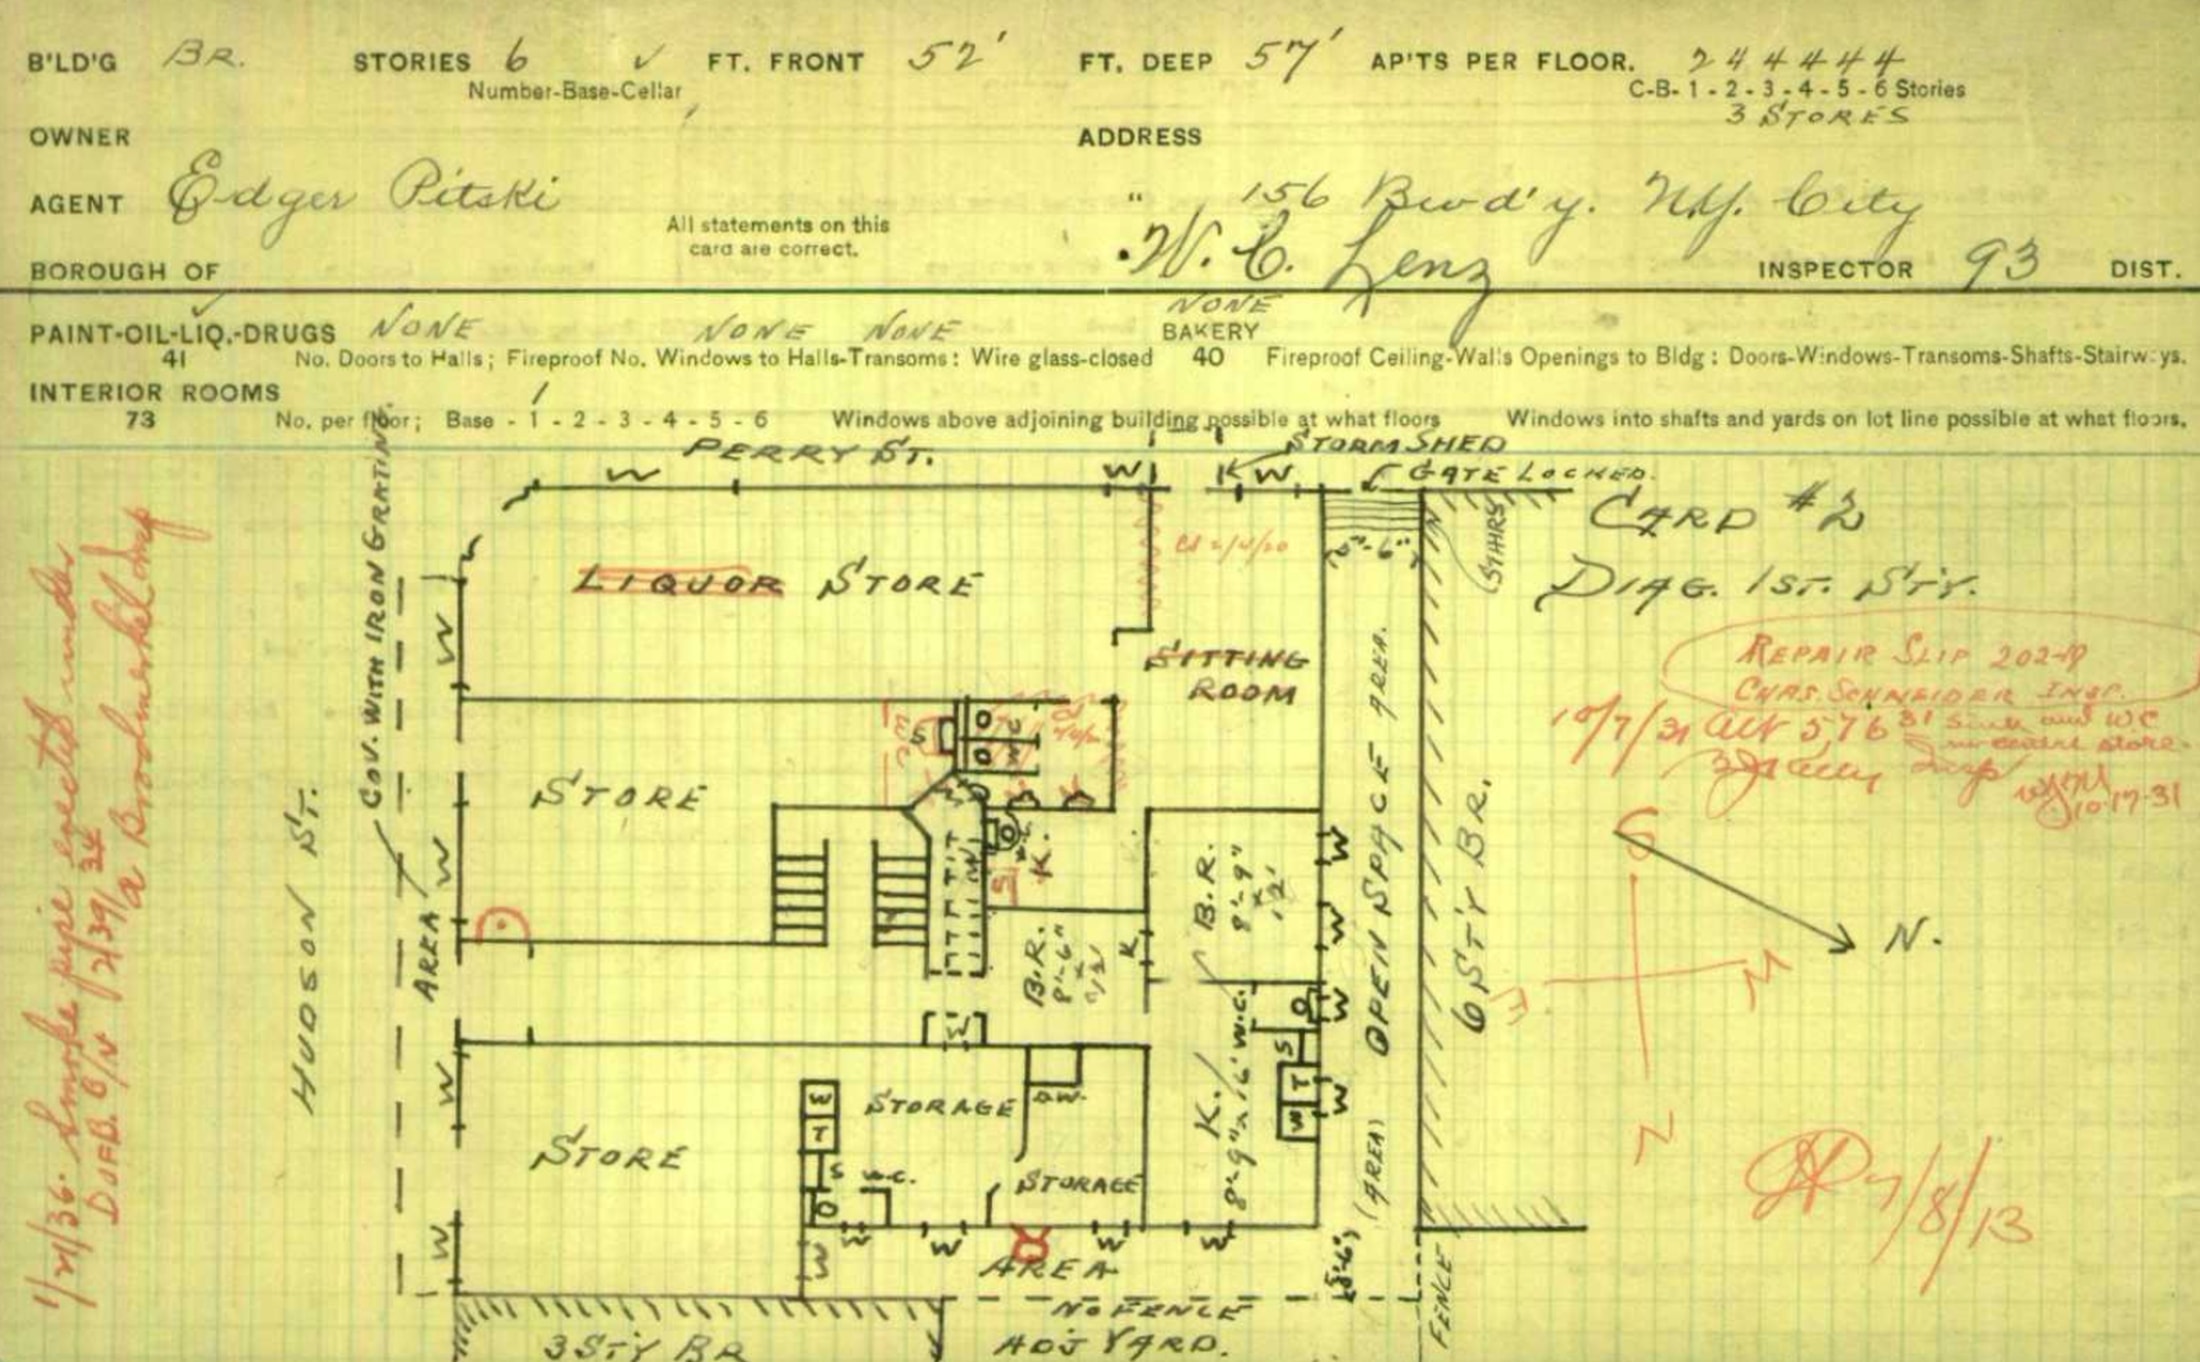 B'LD'G BR. STORIES 6 ✓ FT. FRONT 52' FT. DEEP 57' AP'TS PER FLOOR. 2 4 4 4 4 4
Number-Base-Cellar C-B- 1 - 2 - 3 - 4 - 5 - 6 Stories
3 STORES
OWNER ADDRESS
AGENT Edger Pitski " 156 Bwd'y. N.Y. City
All statements on this
card are correct.
BOROUGH OF W. C. Lenz INSPECTOR 93 DIST.
PAINT-OIL-LIQ.-DRUGS NONE NONE NONE NONE BAKERY
41 No. Doors to Halls; Fireproof No. Windows to Halls-Transoms: Wire glass-closed 40 Fireproof Ceiling-Walls Openings to Bldg: Doors-Windows-Transoms-Shafts-Stairways.
INTERIOR ROOMS 1
73 No. per floor; Base - 1 - 2 - 3 - 4 - 5 - 6 Windows above adjoining building possible at what floors Windows into shafts and yards on lot line possible at what floors.
PERRY ST.
STORM SHED
GATE LOCKED.
W W W
(STAIRS)
CARD #2
DIAG. 1ST. ST'Y.
5'-6"
LIQUOR STORE
SITTING
ROOM
REPAIR SLIP
CHAS. SCHNEIDER INSP.
10/7/31 Alt 576 31 Sink and WC
in centre store
10-17-31
STORE
S
W.C.
K.
B.R.
8'-9"
x
12'
B.R.
8'-6"
K.
K.
8'-9" x 16' W.C.
S
T
W
STORAGE
D.W.
STORE
W
T
S
W.C.
STORAGE
W W W W
AREA
NO FENCE
ADJ YARD.
3 STY BR
HUDSON ST.
COV. WITH IRON GRATING
AREA
W W W W
OPEN SPACE AREA.
(AREA)
6 STY BR.
FENCE
N.
S
E
W
N
7/8/13
1/21/36. Smoke pipe erected under